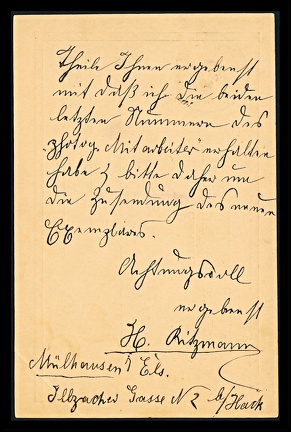 Theile Ihnen ergebenst
mit daß ich die beiden
letzten Nummern des
„photog. Mitarbeiter“ erhalten
habe & bitte daher um
die Zusendung des neuen
Exemplares.
Achtungsvoll
ergebenst
H. Ritzmann
Mülhausen i/Els.
Illzacher Gasse N 2 b/Hack